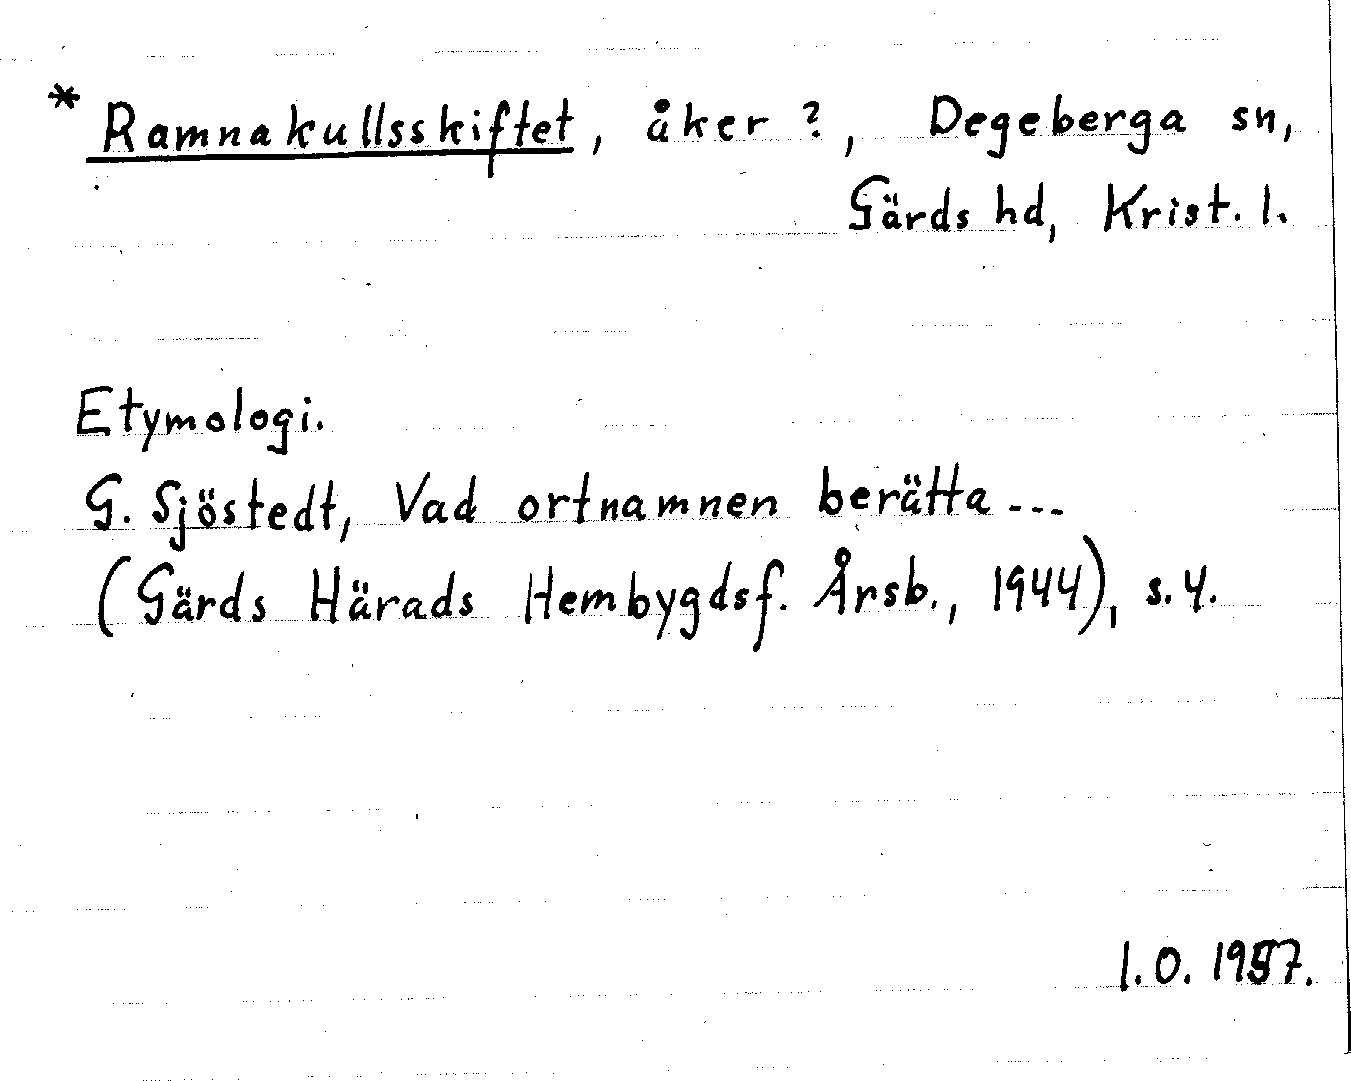 * Ramnakullsskiftet, åker ?, Degeberga sn,
Gärds hd, Krist. l.
Etymologi.
G. Sjöstedt, Vad ortnamnen berätta ---
(Gärds Härads Hembygdsf. Årsb., 1944), s. 4.
I.O. 1957.